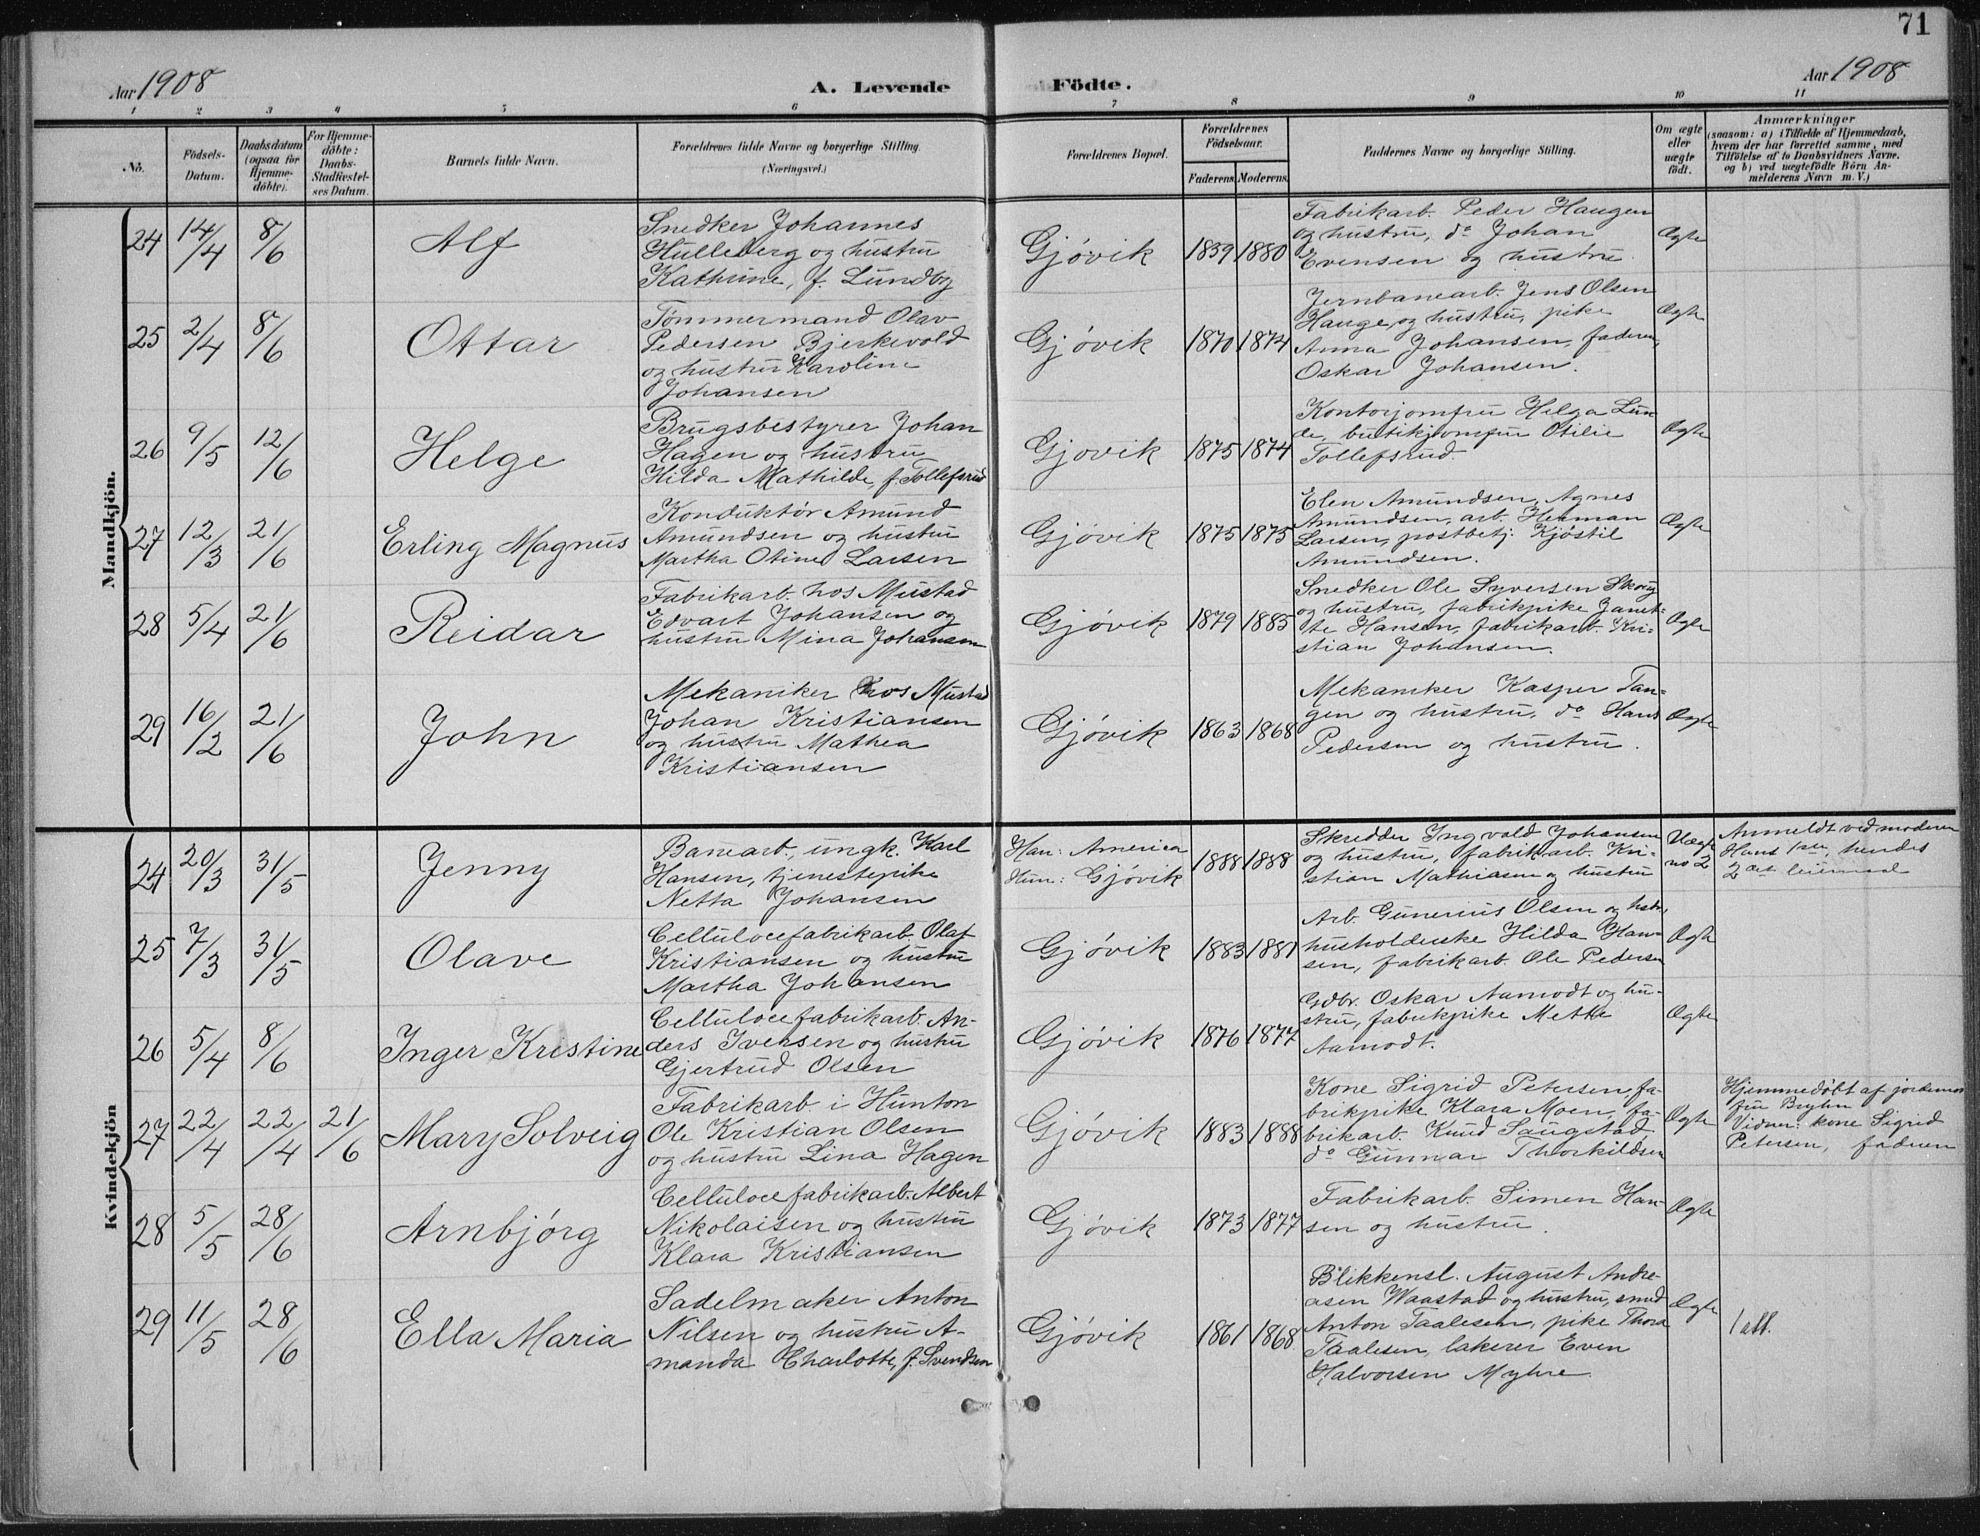 71
Aar 1908
A. Levende
Födte.
Aar 1908
1 2 3 4 5 6 7 8 9 10 11
No.
Födsels-
Datum.
Daabsdatum
(ogsaa for
Hjemme-
döbte).
For Hjemme-
döbte:
Daabs-
Stadfæstel-
ses Datum.
Barnets fulde Navn.
Forældrenes fulde Navne og borgerlige Stilling.
(Næringsvei.)
Forældrenes Bopæl.
Forældrenes
Födselsaar.
Faderens. Moderens.
Faddernes Navne og borgerlige Stilling.
Om ægte
eller
uægte
födt.
Anmærkninger
(saasom: a) i Tilfælde af Hjemmedaab,
hvem der har forrettet samme, med
Tilföielse af to Daabsvidners Navne.
og b) ved uægtefödte Börn An-
melderens Navn m. V.)
Mandkjön.
24 14/4 8/6 Alf
Snedker Johannes
Hulleberg og hustru
Kathrine, f. Lundby
Gjøvik 1859 1880
Fabrikarb. Peder Haugen
og hustru, do Johan
Evensen og hustru
Ægte
25 2/4 8/6 Ottar
Tømmermand Olav
Pedersen Bjerkevold
og hustru Karoline
Johansen
Gjøvik 1870 1874
Jernbanearb. Jens Olsen
Hauge, og hustru, pike
Anna Johansen, faderen,
Oskar Johansen.
Ægte
26 9/5 12/6 Helge
Brugsbestyrer Johan
Hagen og hustru
Hilda Mathilde, f. Tollefsrud
Gjøvik 1875 1874
Kontorjomfru Helga Lun-
de, butikjomfru Otilie
Tollefsrud.
Ægte
27 12/3 21/6 Erling Magnus
Konduktør Amund
Amundsen og hustru
Martha Otine Larsen
Gjøvik 1875 1875
Elen Amundsen, Agnes
Amundsen, arb. Herman
Larsen, postbetj. Kjøstil
Amundsen.
Ægte
28 5/4 21/6 Reidar
Fabrikarb. hos Mustad
Edvart Johansen og
hustru Mina Johansen
Gjøvik 1879 1885
Snedker Ole Syversen Skoug
og hustru, fabrikpike Janet-
te Hansen, fabrikarb. Kri-
stian Johansen.
Ægte
29 16/2 21/6 John
Mekaniker hos Mustad
Johan Kristiansen
og hustru Mathea
Kristiansen
Gjøvik 1863 1868
Mekaniker Kasper Tan-
gen og hustru, do Hans
Pedersen og hustru.
Ægte
Kvindekjön
24 20/3 31/5 Jenny
Banearb., ungk. Karl
Hansen, tjenestepike
Netta Johansen
Han: America
Hun: Gjøvik
1888 1888
Skredder Ingvald Johansen
og hustru, fabrikarb. Kri-
stian Mathiasen og hustru
Uægte
no 2
Anmeldt ved moderen
Hans 1ste, hendes
2det leiermaal
25 7/3 31/5 Olave
Cellulocefabrikarb. Olaf
Kristiansen og hustru
Martha Johansen
Gjøvik 1883 1881
Arb. Gunerius Olsen og hstr.,
husholderske Hilda Han-
sen, fabrikarb. Ole Pedersen
Ægte
26 5/4 8/6 Inger Kristine
Cellulocefabrikarb. An-
ders Iversen og hustru
Gjertrud Olsen
Gjøvik 1876 1877
Gdbr. Oskar Aamodt og hu-
stru, fabrikpike Mette
Aamodt.
Ægte
27 22/4 22/4 21/6 Mary Solveig
Fabrikarb. i Hunton
Ole Kristian Olsen
og hustru Lina Hagen
Gjøvik 1883 1888
Kone Sigrid Petersen, fa-
brikpike Klara Moen, fa-
brikarb. Knud Saugstad
do Gunnar Thorkildsen
Ægte
Hjemmedøbt af jordemor
fru Bryhn
Vidner: kone Sigrid
Petersen, faderen
28 5/5 28/6 Arnbjørg
Cellulocefabrikarb. Albert
Nikolaisen og hustru
Klara Kristiansen
Gjøvik 1873 1877
Fabrikarb. Simen Han-
sen og hustru.
Ægte
29 11/5 28/6 Ella Maria
Sadelmaker Anton
Nilsen og hustru A-
manda Charlotte, f. Svendsen
Gjøvik 1861 1868
Blikkensl. August Andre-
asen Waastad og hustru, smed
Anton Taalesen, pike Thora
Taalesen, lakerer Even
Halvorsen Myhre
Ægte
1 att.